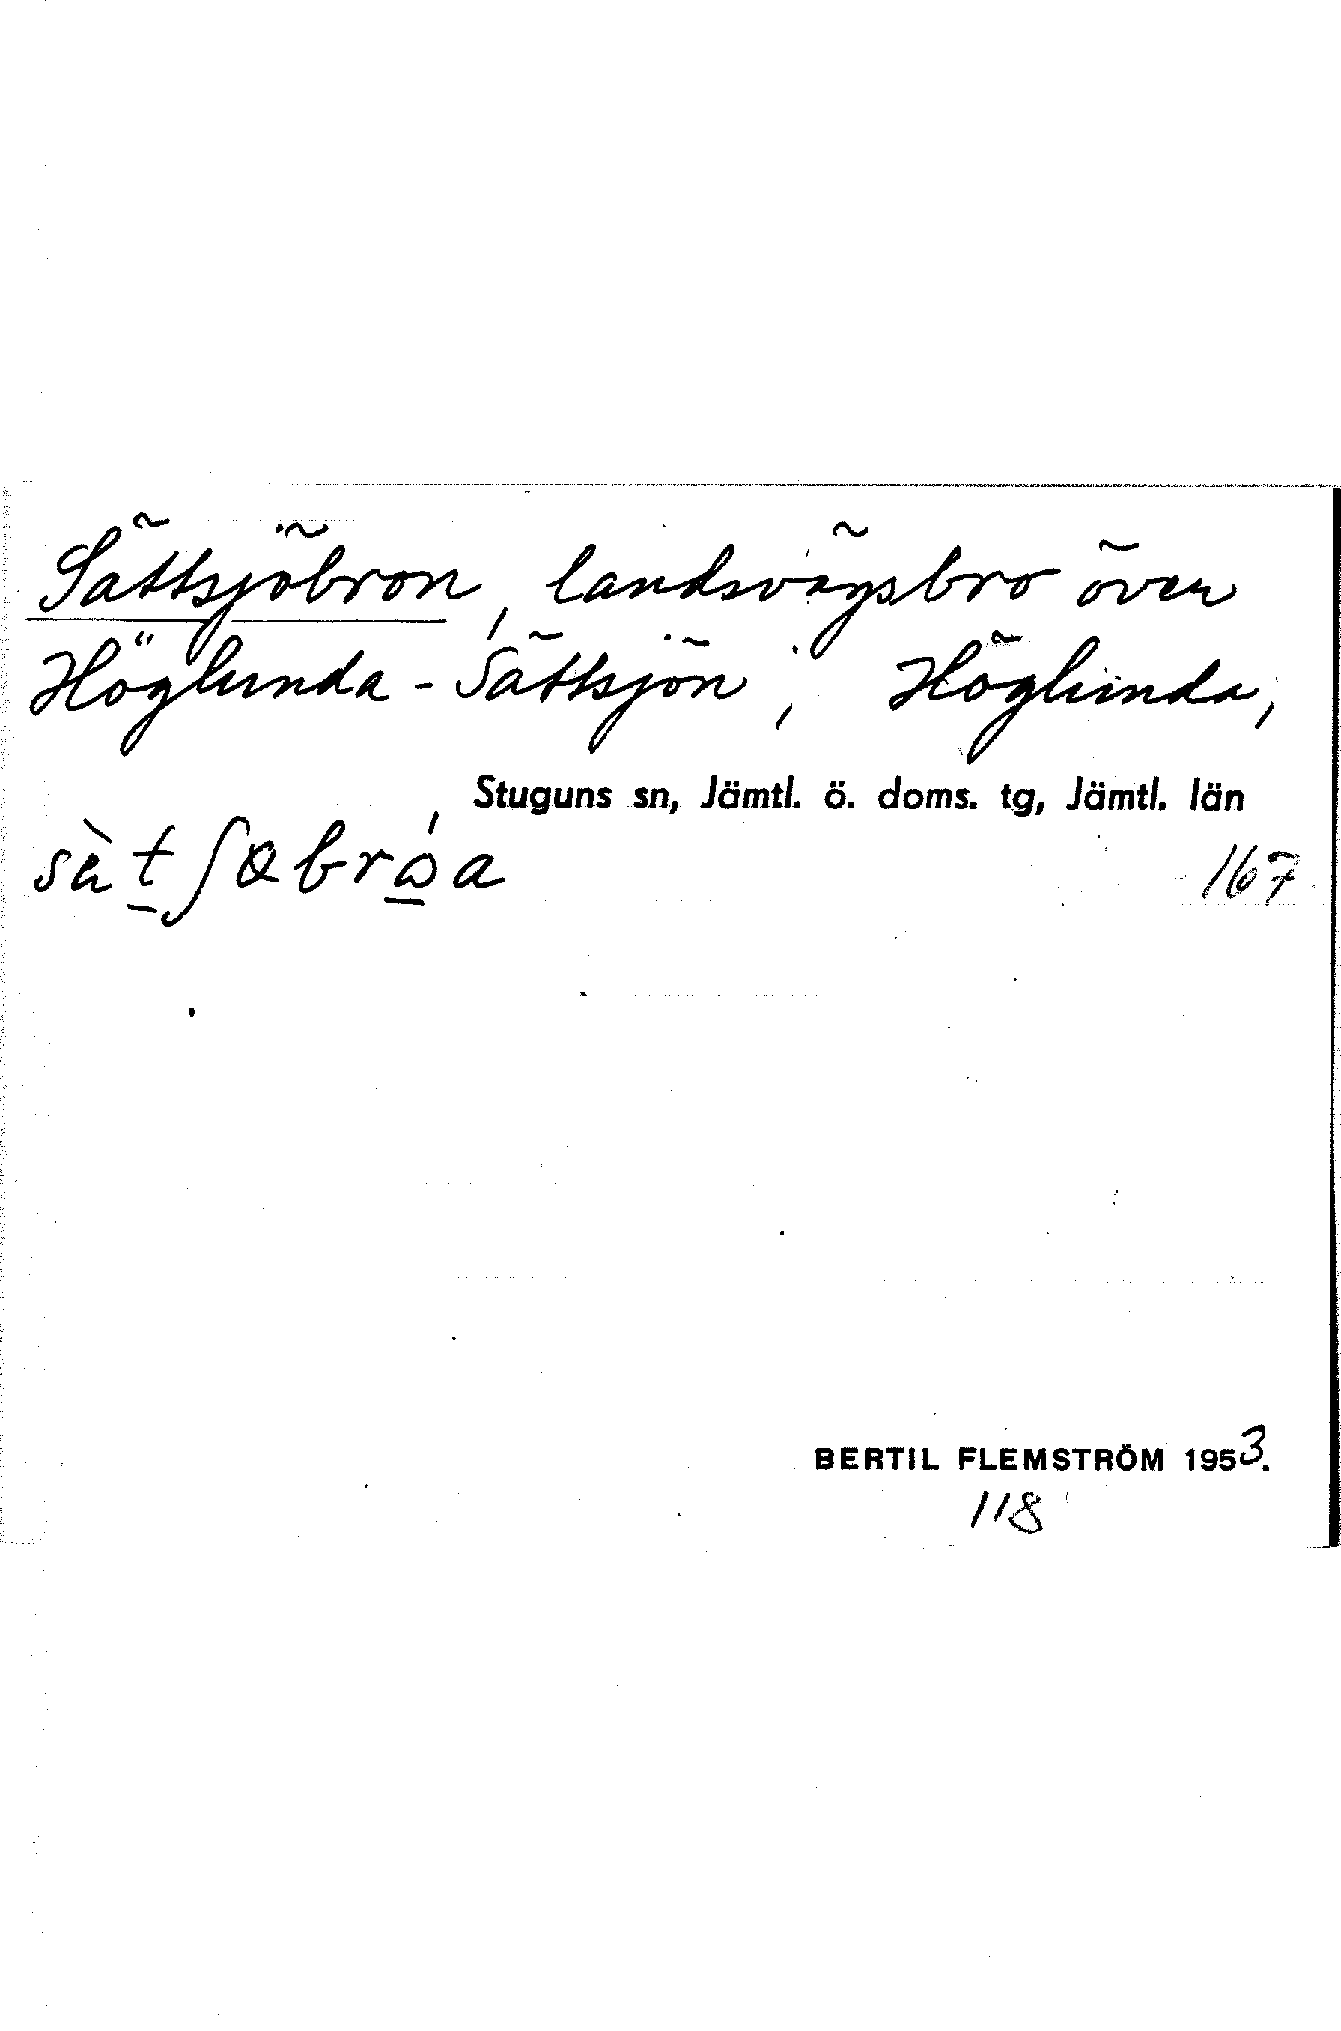 Sättsjöbron, landsvägsbro över
Höglunda-Sättsjön, Höglunda,
Stuguns sn, Jämtl. ö. doms. tg, Jämtl. län
167
BERTIL FLEMSTRÖM 1953.
118